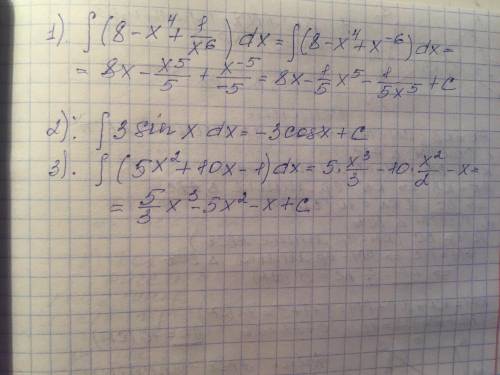 1). ∫(8 - x⁴ + 1/x⁶) dx = ∫(8 - x⁴ + x⁻⁶) dx =
= 8x - x⁵/5 + x⁻⁵/-5 = 8x - 1/5 x⁵ - 1/5x⁵ + C
2): ∫ 3 sin x dx = -3cosx + C
3). ∫ (5x² + 10x - 1) dx = 5 · x³/3 - 10 · x²/2 - x =
= 5/3 x³ - 5x² - x + C